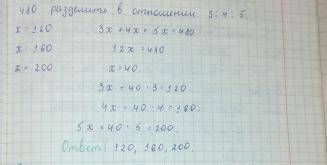 480 разделить в отношении 3:4:5.
x = 120 3x + 4x + 5x = 480
x = 160 12x = 480
x = 200 x = 40
3x = 40 · 3 = 120
4x = 40 · 4 = 160.
5x = 40 · 5 = 200.
Ответ: 120, 160, 200.